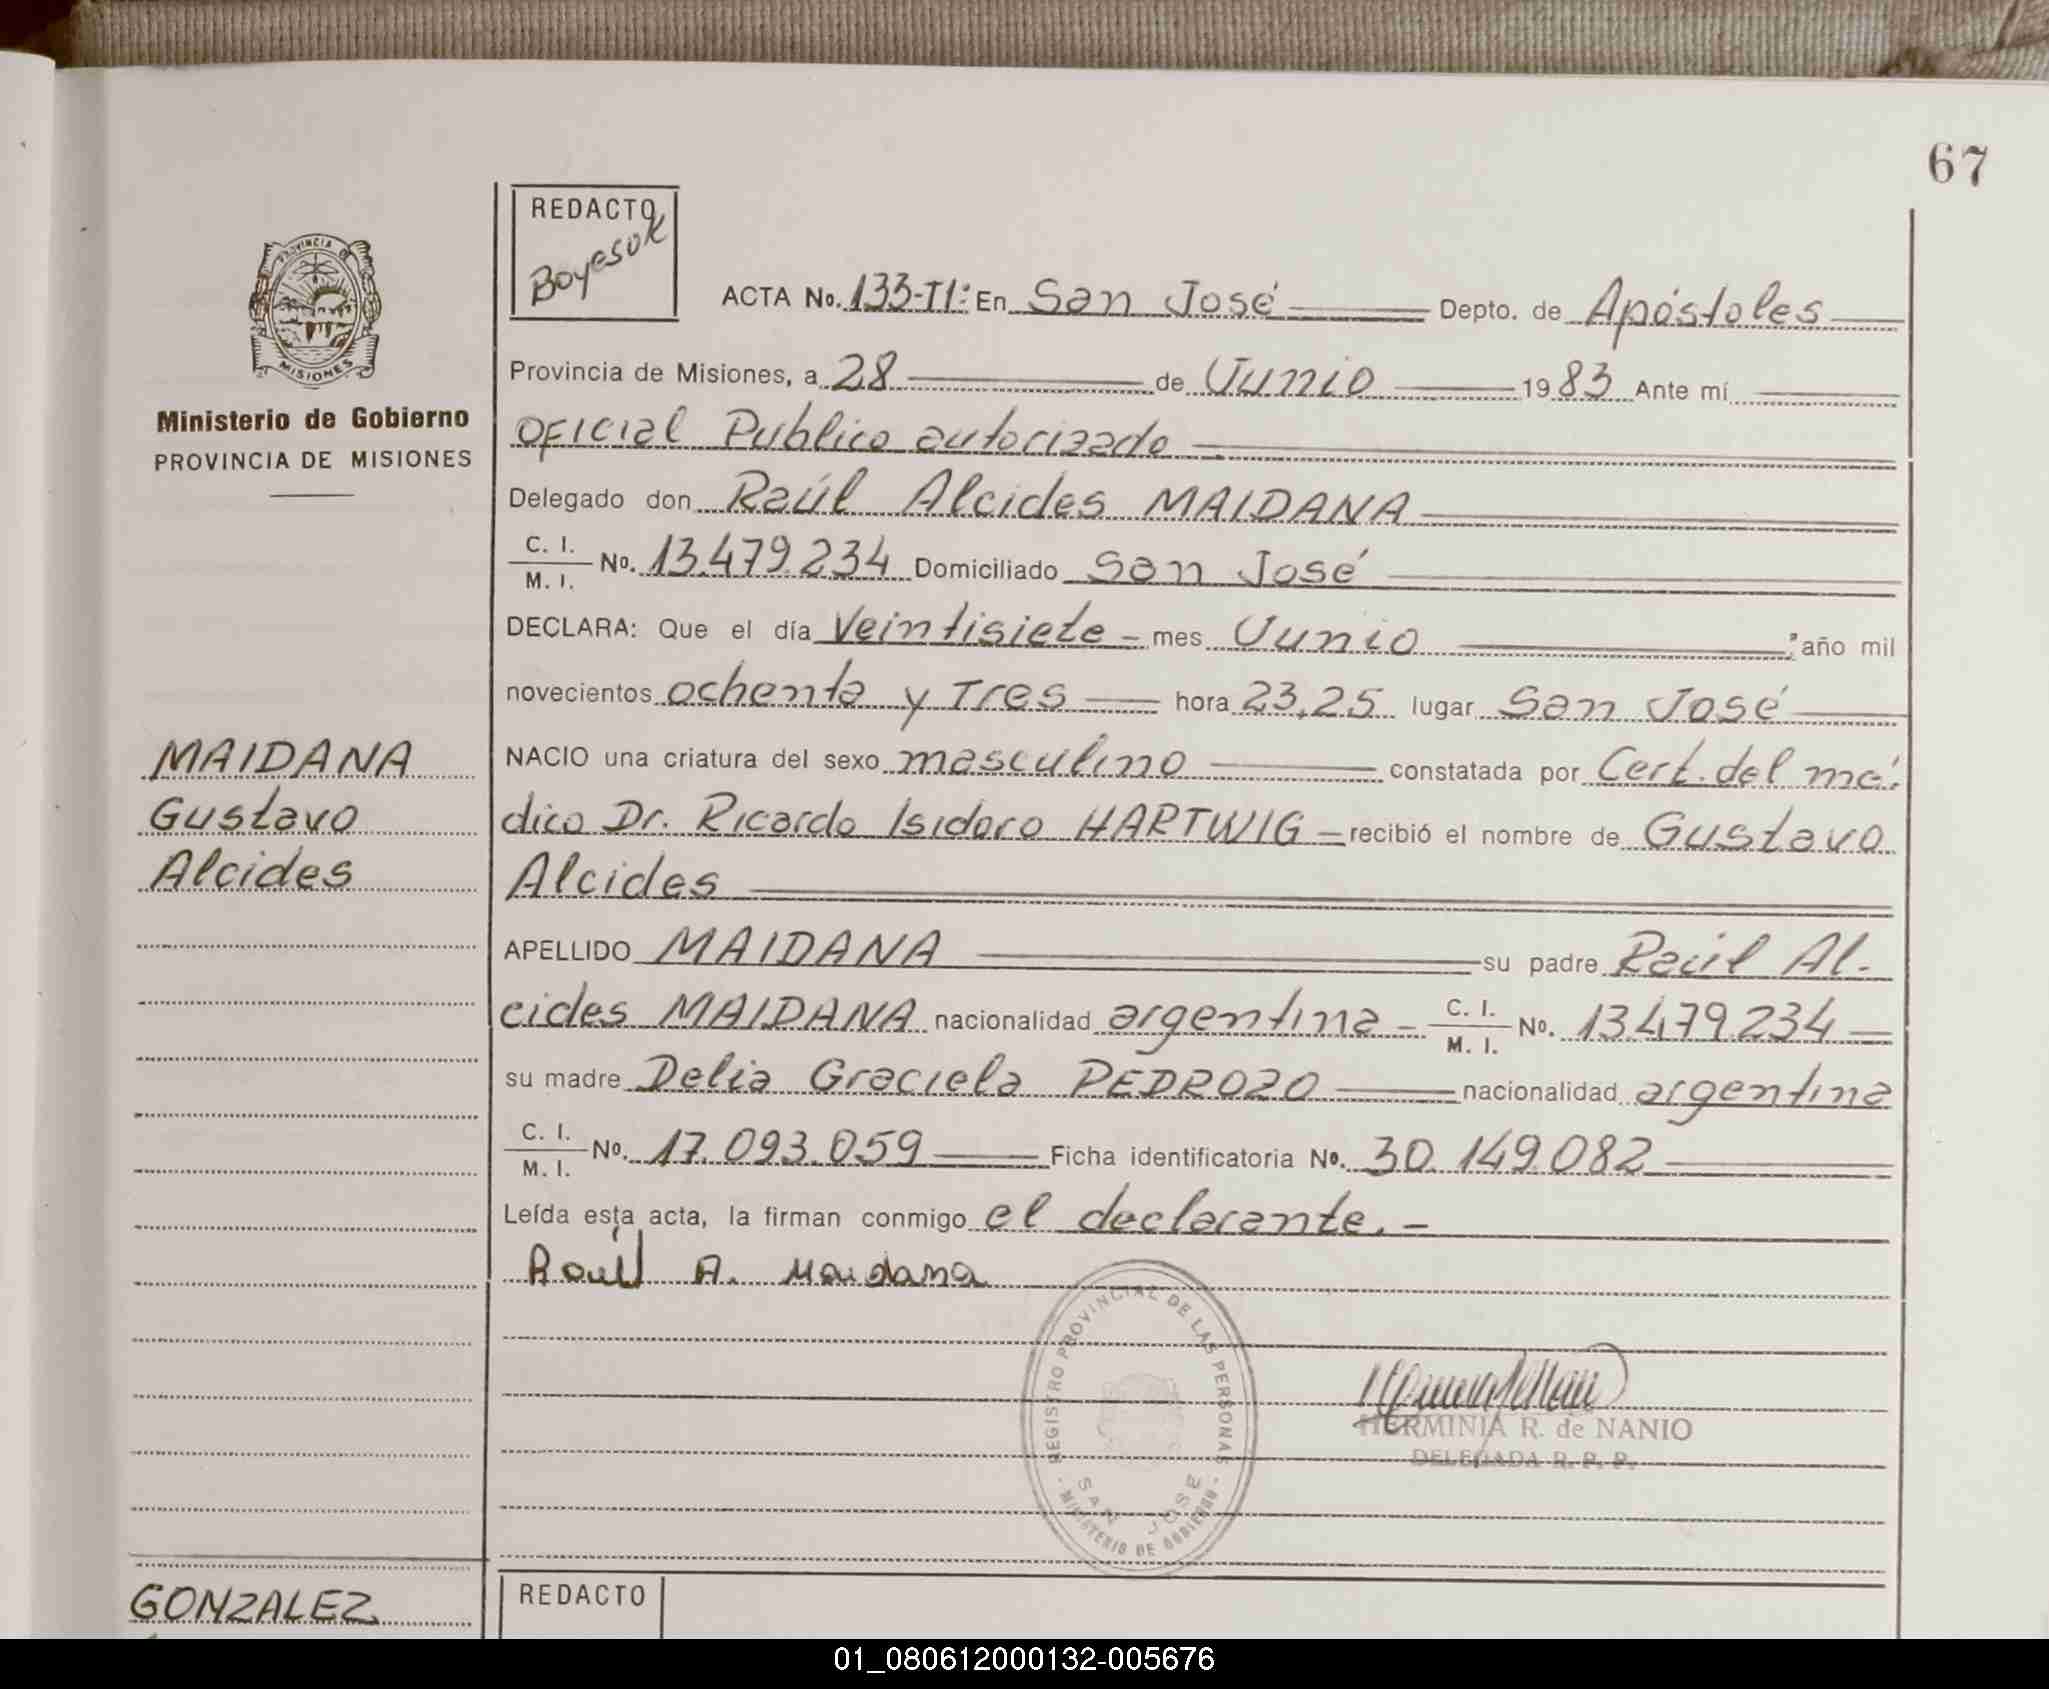 67
REDACTO
Boyesuk
PROVINCIA DE
MISIONES
Ministerio de Gobierno
PROVINCIA DE MISIONES
ACTA No. 133-TI: En San José Depto. de Apóstoles
Provincia de Misiones, a 28 de Junio 1983 Ante mí
OFICIAL Publico autorizado
Delegado don Raúl Alcides MAIDANA
C. I.
M. I. No. 13.479.234 Domiciliado San José
DECLARA: Que el día Veintisiete - mes Junio ; año mil
novecientos ochenta y Tres hora 23,25 lugar San José
MAIDANA
Gustavo
Alcides
NACIO una criatura del sexo masculino constatada por Cert. del mé-
dico Dr. Ricardo Isidoro HARTWIG - recibió el nombre de Gustavo
Alcides
APELLIDO MAIDANA su padre Raúl Al-
cides MAIDANA nacionalidad argentina - C. I.
M. I. No. 13.479.234
su madre Delia Graciela PEDROZO nacionalidad argentina
C. I.
M. I. No. 17.093.059 Ficha identificatoria No. 30.149.082
Leída esta acta, la firman conmigo el declarante. -
Raúl A. Maidana
REGISTRO PROVINCIAL DE LAS PERSONAS
SAN JOSE
MINISTERIO DE GOBIERNO
HERMINIA R. de NANIO
DELEGADA R. P. P.
GONZALEZ
REDACTO
01_080612000132-005676